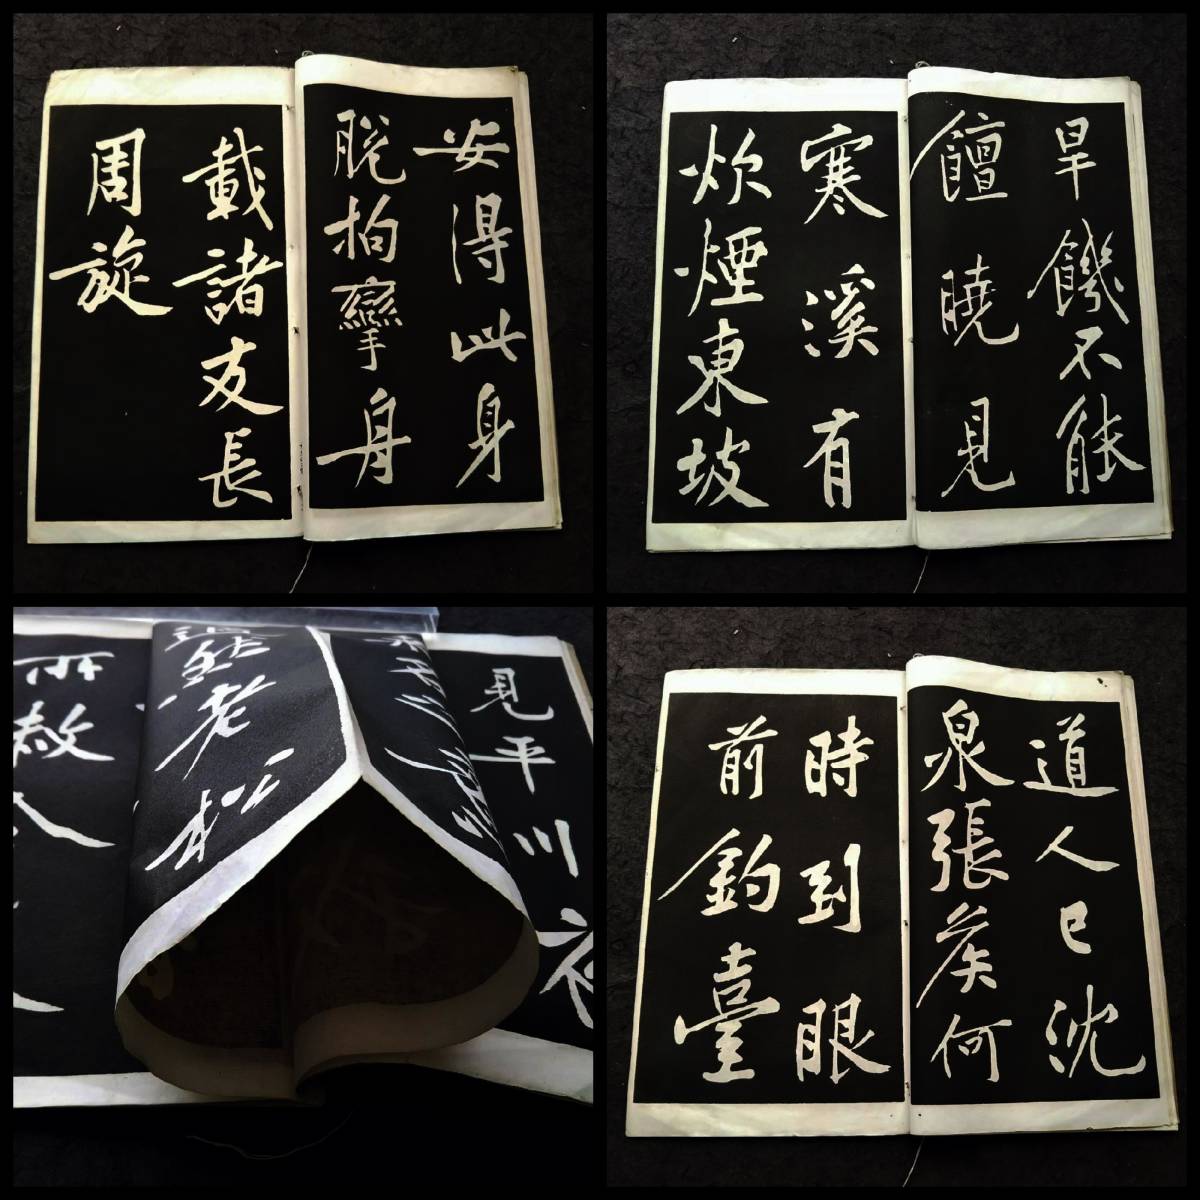 安得此身
脫拘攣舟
載諸友長
周旋
旱饑不能
饘曉見
寒溪有
炊煙東坡
見平川夜
然老松
所赦今
道人已沈
泉張侯何
時到眼
前釣臺